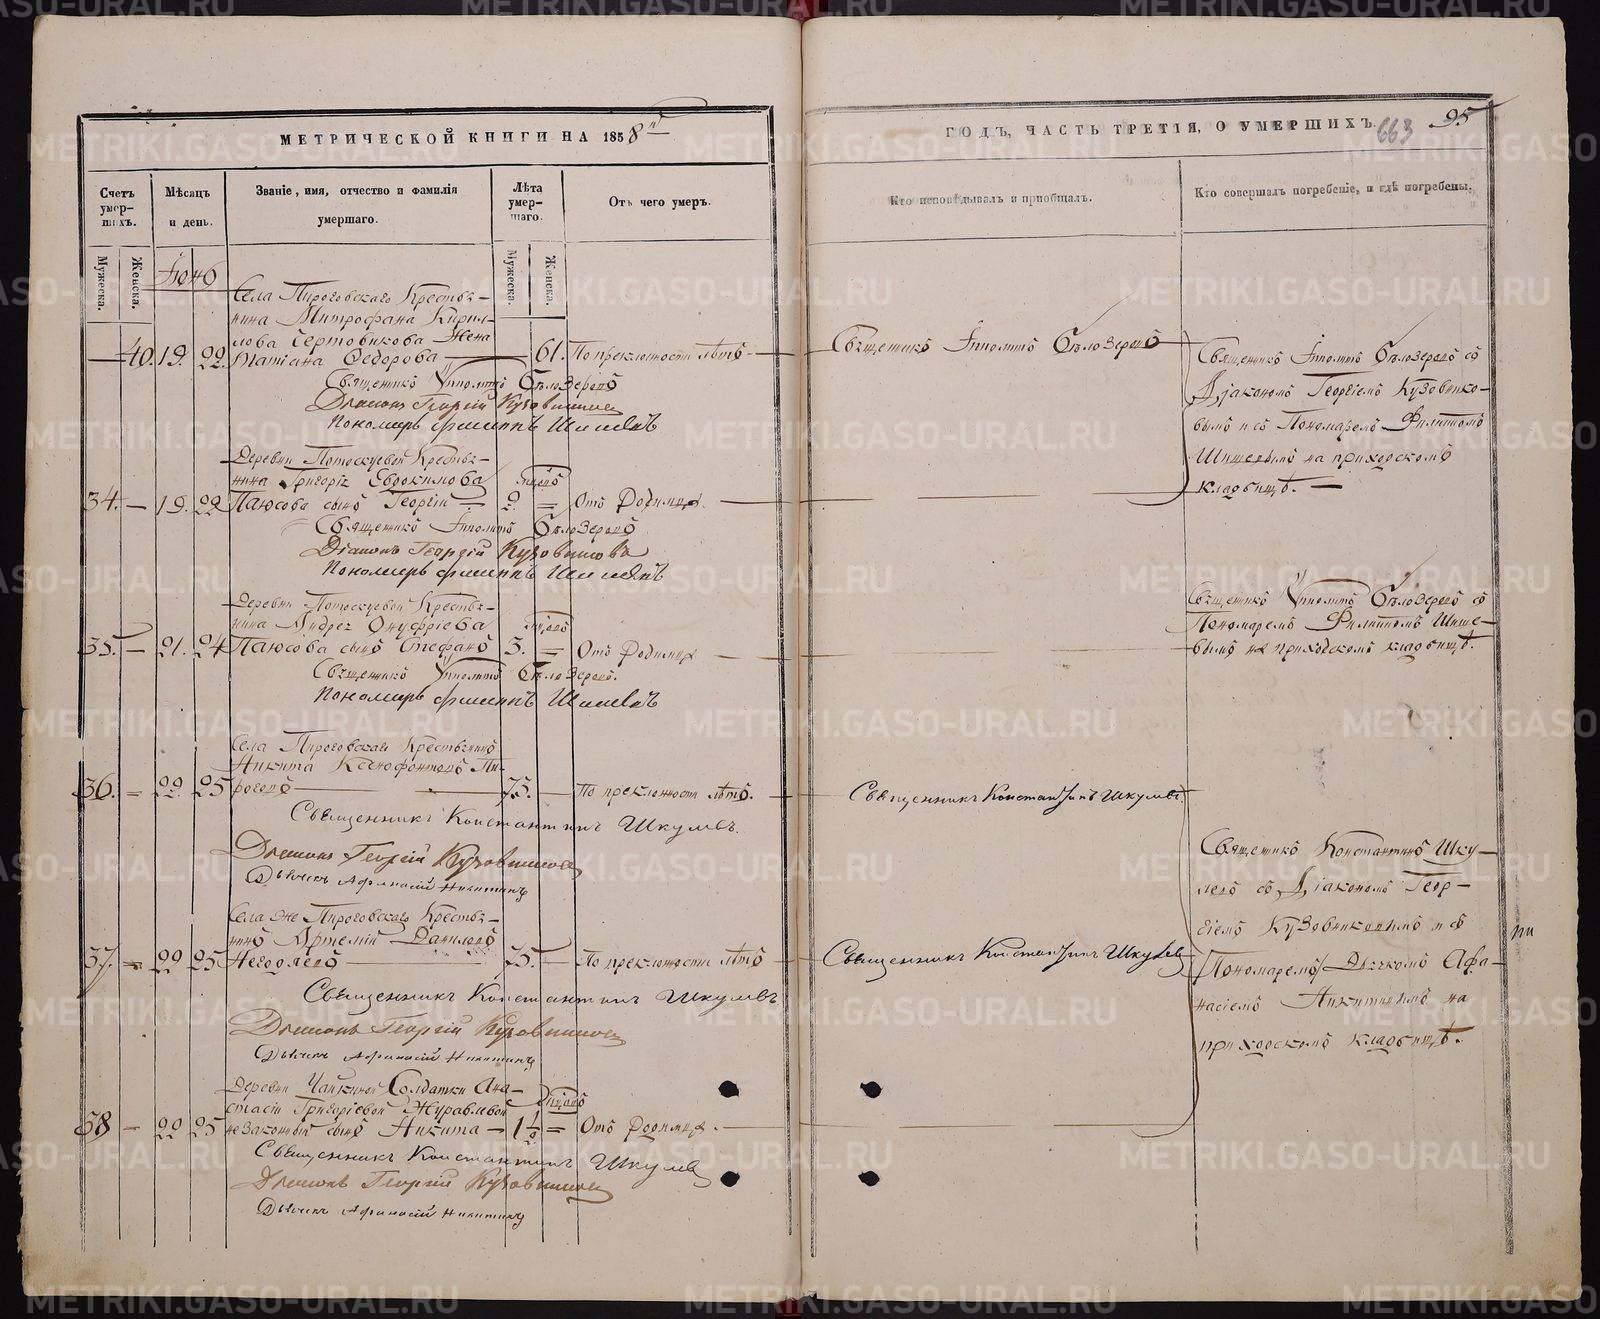 МЕТРИЧЕСКОЙ КНИГИ НА 1858й
ГОДЪ, ЧАСТЬ ТРЕТІЯ, О УМЕРШИХЪ.
663
95
Счетъ умершихъ.
Мужеска.
Женска.
Мѣсяцъ и день.
Званіе, имя, отчество и фамилія умершаго.
Лѣта умершаго.
Мужеска.
Женска.
Отъ чего умеръ.
Кто исповѣдывалъ и пріобщалъ.
Кто совершалъ погребеніе, и гдѣ погребены.
Села Пироговскаго Крестья-
нина Митрофана Кирил-
лова Чертовикова Жена
40. 19. 22. Татіана Ѳедорова — 61. По преклонности лѣтъ
Священникъ Ипполитъ Бѣлозеровъ
Діаконъ Георгій Кузовников
Пономарь Филиппъ Шишевъ
Деревни Потоскуевой Крестья-
нина Григорія Евдокимова
34. — 19. 22 Паюсова сынъ Георгій — 2. = Отъ Родимца.
Священникъ Ипполитъ Бѣлозеровъ
Діаконъ Георгій Кузовников
Пономарь Филиппъ Шишевъ
Деревни Потоскуевой Крестья-
нина Андрея Онуфріева
35. — 21. 24 Паюсова сынъ Стефанъ 3. = Отъ Родимца
Священникъ Ипполитъ Бѣлозеровъ.
Пономарь Филиппъ Шишевъ
Села Пироговскаго Крестьянинъ
Никита Ксенофонтовъ Пи-
36. = 22 25 роговъ — 75. — По преклонности лѣтъ.
Священникъ Константинъ Шкулевъ.
Діаконъ Георгій Кузовников
Дьячекъ Афанасій Никитинъ
Села же Пироговскаго Крестья-
нинъ Артемій Даниловъ
37. = 22 25 Негодяевъ — 75. — По преклонности лѣтъ
Священникъ Константинъ Шкулевъ
Діаконъ Георгій Кузовников
Дьячекъ Афанасій Никитинъ
Деревни Чайкиной Солдатки Ана-
стасіи Григоріевой Журавлевой
38 — 22 25 незаконный сынъ Никита — 1½ = Отъ Родимца.
Священникъ Константинъ Шкулев
Діаконъ Георгій Кузовников
Дьячекъ Афанасій Никитинъ
Священникъ Ипполитъ Бѣлозеровъ
Священникъ Константинъ Шкулевъ.
Священникъ Константинъ Шкулев
Священникъ Ипполитъ Бѣлозеровъ съ
Діакономъ Георгіемъ Кузовнико-
вымъ и съ Пономаремъ Филиппомъ
Шишевымъ на приходскомъ
кладбищѣ. —
Священникъ Ипполитъ Бѣлозеровъ съ
Пономаремъ Филиппомъ Шише-
вымъ на приходскомъ кладбищѣ.
Священникъ Константинъ Шку-
левъ съ Діакономъ Геор-
гіемъ Кузовниковымъ и съ
Пономаремъ Дьячкомъ Афа-
насіемъ Никитинымъ на
приходскомъ кладбищѣ.
METRIKI.GASO-URAL.RU